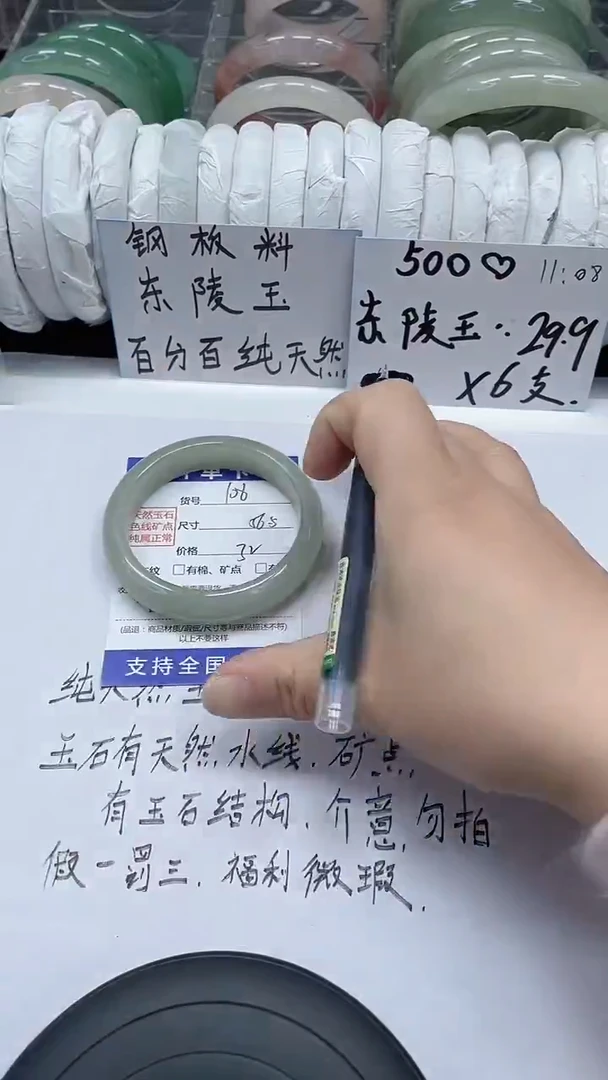 钢板料
东陵玉
百分百纯天然
500♡ 11:08
东陵玉:29.9
x6支.
货号 106
天然玉石
色线矿点
纯属正常
尺寸
价格 32
纹 □有棉、矿点 □
(品退:商品材质/瑕疵/尺寸等与商品描述不符)
以上不要这样
支持全国
纯天然玉
玉石有天然水线.矿点
有玉石结构.介意勿拍
假一罚三.福利微瑕.